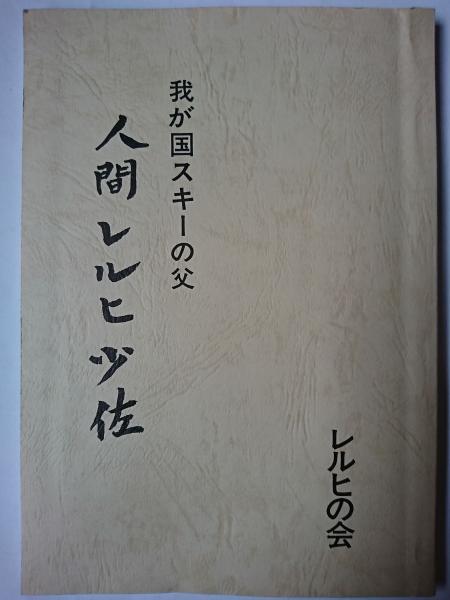 我が国スキーの父
人間レルヒ少佐
レルヒの会